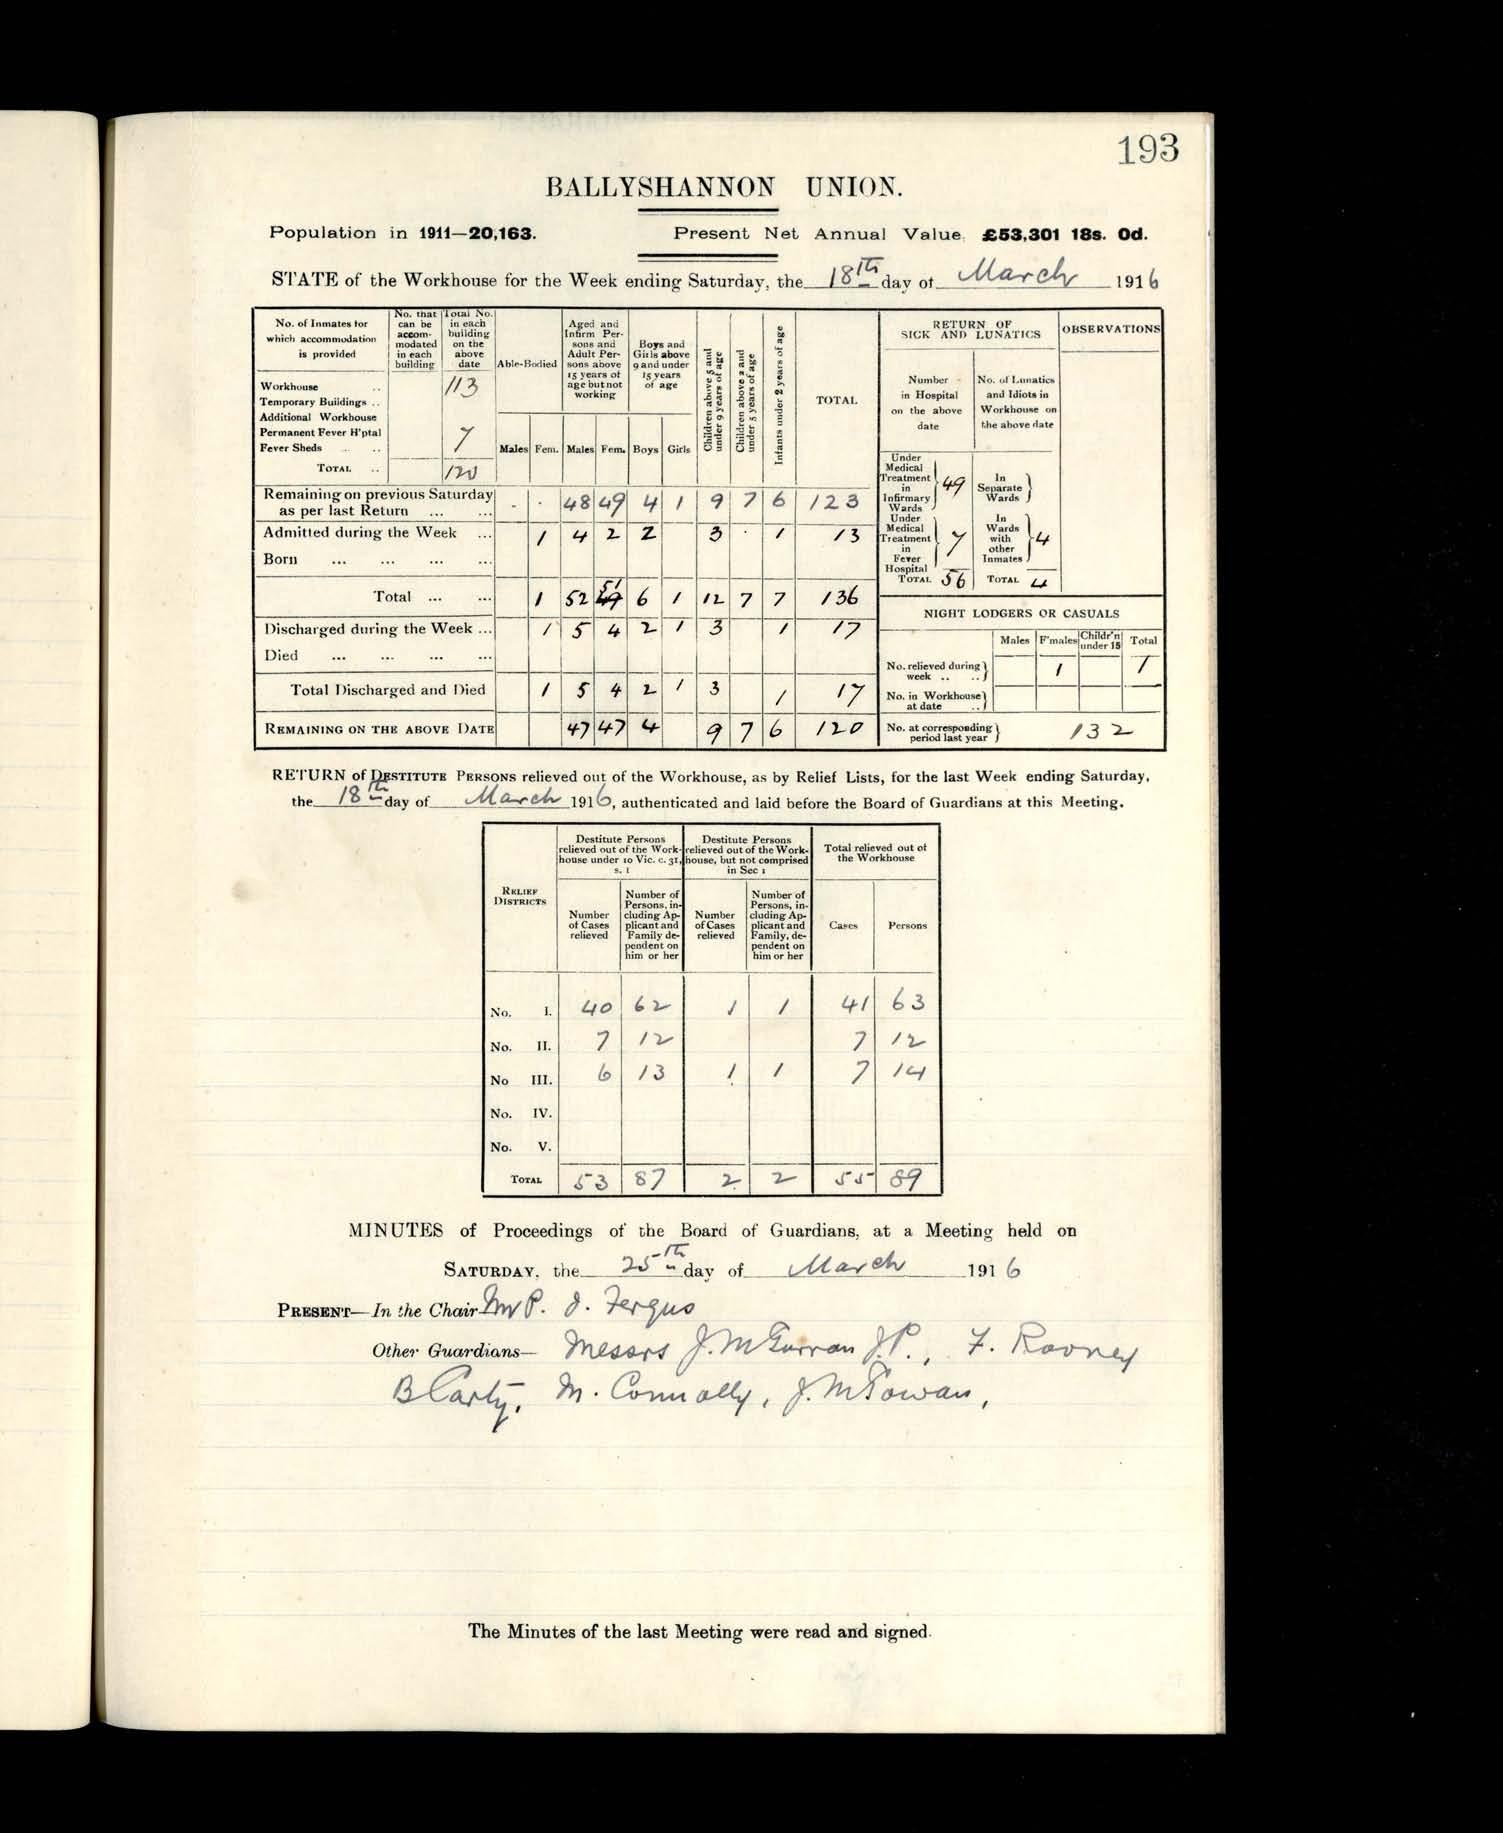 193
BALLYSHANNON UNION.
Population in 1911—20,163. Present Net Annual Value, £53,301 18s. 0d.
STATE of the Workhouse for the Week ending Saturday, the 18th day of March 1916
No. of Inmates for which accommodation is provided | No. that can be accommodated in each building | Total No. in each building on the above date | Able-Bodied | Aged and Infirm Persons and Adult Persons above 15 years of age but not working | Boys and Girls above 9 and under 15 years of age | Children above 5 and under 9 years of age | Children above 2 and under 5 years of age | Infants under 2 years of age | TOTAL
Males Fem. Males Fem. Boys Girls
Workhouse .. 113
Temporary Buildings ..
Additional Workhouse
Permanent Fever H'ptal 7
Fever Sheds ... ..
TOTAL .. 120
Remaining on previous Saturday as per last Return ... ... - . 48 49 4 1 9 7 6 123
Admitted during the Week ... 1 4 2 2 3 . 1 13
Born ... ... ... ...
Total ... ... 1 52 49 51 6 1 12 7 7 136
Discharged during the Week ... 1 5 4 2 1 3 1 17
Died ... ... ... ...
Total Discharged and Died 1 5 4 2 1 3 1 17
REMAINING ON THE ABOVE DATE 47 47 4 9 7 6 120
RETURN OF SICK AND LUNATICS
OBSERVATIONS
Number in Hospital on the above date | No. of Lunatics and Idiots in Workhouse on the above date
Under Medical Treatment in Infirmary Wards 49 | In Separate Wards
Under Medical Treatment in Fever Hospital 7 | In Wards with other Inmates 4
TOTAL 56 | TOTAL 4
NIGHT LODGERS OR CASUALS
Males F'males Childr'n under 15 Total
No. relieved during week .. .. 1 1
No. in Workhouse at date ..
No. at corresponding period last year 132
RETURN of DESTITUTE PERSONS relieved out of the Workhouse, as by Relief Lists, for the last Week ending Saturday,
the 18th day of March 1916, authenticated and laid before the Board of Guardians at this Meeting.
RELIEF DISTRICTS | Destitute Persons relieved out of the Workhouse under 10 Vic. c. 31, s. 1 | Destitute Persons relieved out of the Workhouse, but not comprised in Sec 1 | Total relieved out of the Workhouse
Number of Cases relieved | Number of Persons, including Applicant and Family dependent on him or her | Number of Cases relieved | Number of Persons, including Applicant and Family, dependent on him or her | Cases | Persons
No. I. 40 62 1 1 41 63
No. II. 7 12 7 12
No III. 6 13 1 1 7 14
No. IV.
No. V.
TOTAL 53 87 2 2 55 89
MINUTES of Proceedings of the Board of Guardians, at a Meeting held on
SATURDAY, the 25th day of March 1916
PRESENT—In the Chair Mr P. J. Fergus
Other Guardians— Messrs J. McGurran J.P., F. Rooney
B Carty, M. Connolly, J. McGowan,
The Minutes of the last Meeting were read and signed.